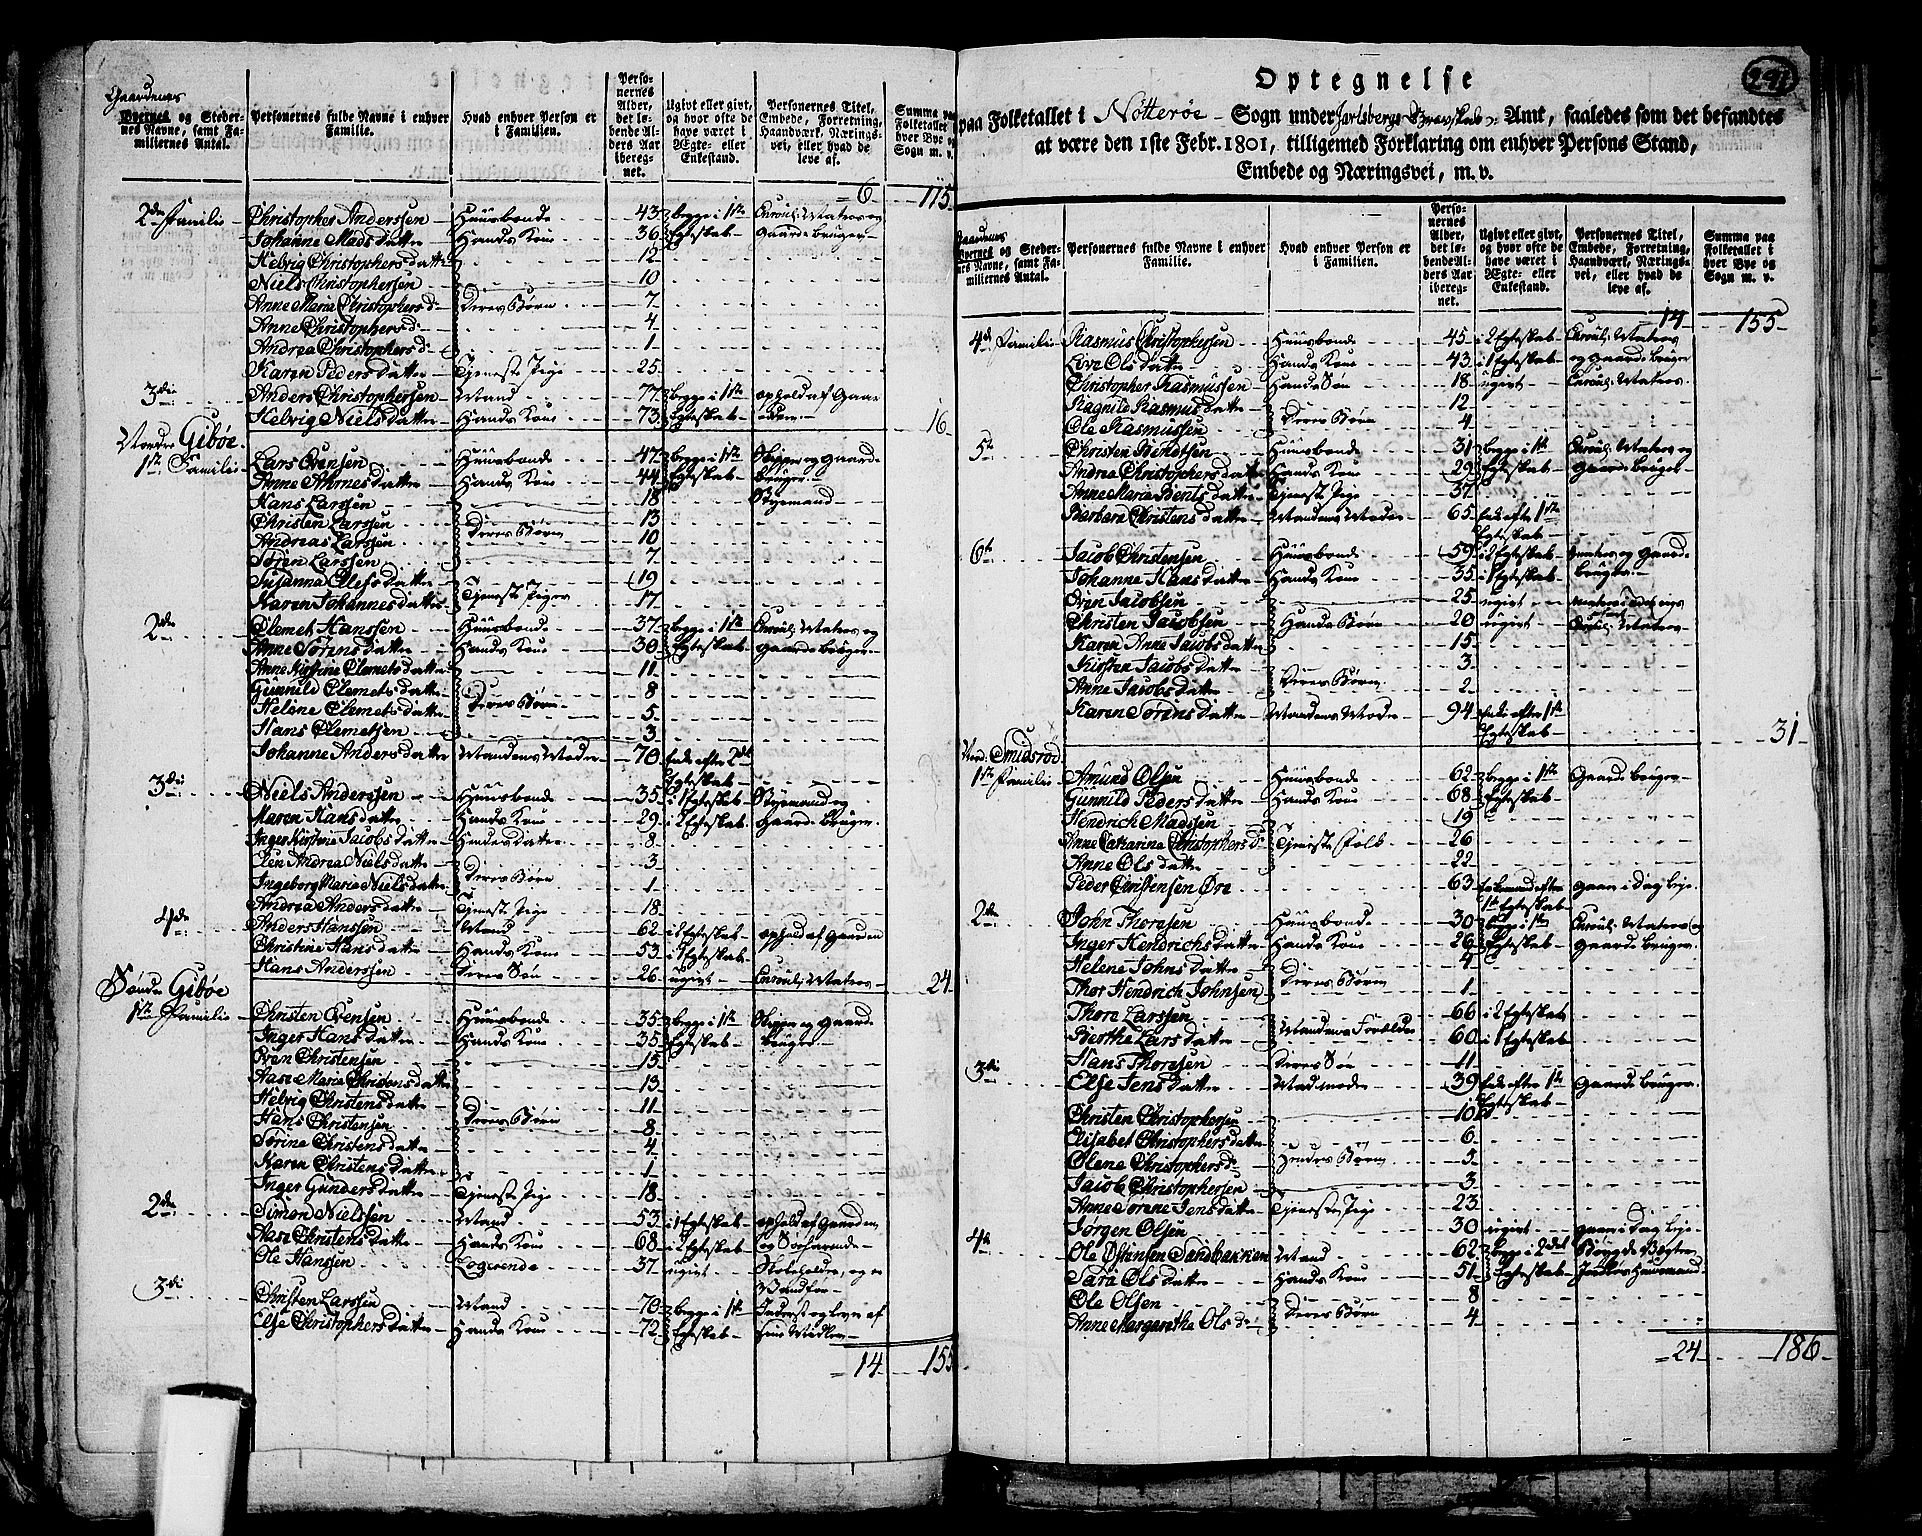 Gaardenes
Byernes og Steder-
nes Navne, samt Fa-
miliernes Antal.
Personernes fulde Navne i enhver
Familie.
Hvad enhver Person er
i Familien.
Perso-
nernes
Alder,
det le-
bende Al-
ders Aar
iberegnet.
Ugivt eller givt,
og hvor ofte de
have været i
Ægte- eller
Enkestand.
Personernes Titel,
Embede, Forretning,
Haandværk, Nærings-
vei, eller hvad de
leve af.
Summa paa
Folketallet
i hver Bye og
Sogn m. v.
6 115
2den Familie Christopher Anderssen Huusbonde 43 begge i 1ste Enroul: Matros og
Johanne Mads datter Hands Kone 36 Egteskab Gaardebruger
Helvig Christophers datter 12
Niels Christophersen 10
Anne Marie Christophers d: Deres Børn 7
Anne Christophers d: 4
Andrea Christophers d: 1
Karen Peders datter Tjeneste Pige 25
3die Anders Christophersen Mand 77 begge i 1ste ophold af Gaar
Helvig Niels datter Hands Kone 73 Egteskab den 16
Nordre Gibøe
1ste Familie Lars Evensen Huusbonde 47 begge i 1ste Skipper og Gaard
Anne Ahrnes datter Hands Kone 44 Egteskab bruger
Hans Larssen 18
Christen Larssen 13
Andreas Larssen Deres Børn 10
Søren Larssen 7
Susanna Olefs datter Tjeneste Piger 19
Karen Johannes datter 17
2den Clemet Hanssen Huusbonde 37 begge i 1ste Enroul: Matros og
Anne Sørens datter Hands Kone 30 Egteskab Gaardebruger
Anne Kirstine Clemets datter 11
Gunnild Clemets datter 8
Helene Clemets datter Deres Børn 5
Hans Clemetsen 3
Johanne Anders datter Mandens Moder 70 Enke efter 2det
Egteskab
3die Niels Anderssen Huusbonde 35 i 1 Egteskab
Maren Hans datter Hands Kone 29 i 2 Egteskab Gaardebruger
Inger Kirstine Jacobs datter Hendes datter 8
Elen Andrea Niels datter 3
Ingeborg Marie Niels datter Deres Børn 1
Andrea Anders datter Tjeneste Pige 18
4de Anders Hanssen Mand 62 i 2 Egteskab ophold af Gaarden
Christine Hans datter Hands Kone 53 i 1 Egteskab
Hans Anderssen Deres Søn 26 ugivt Enroul: Matros 24
Søndre Gibøe
1ste Familie Christen Evensen Huusbonde 35 begge i 1ste Skipper og Gaard
Inger Hans datter Hands Kone 35 Egteskab bruger
Even Christensen 15
Aase Marie Christens datter 13
Helvig Christens datter 11
Hans Christensen Deres Børn 8
Sørine Christens datter 4
Karen Christens datter 1
Inger Gunders datter Tjeneste Pige 18
2den Simon Nielssen Mand 53 i 1 Egteskab ophold af Gaarden
Aase Christens datter Hands Kone 68 i 2 Egteskab
Ole Hanssen Logerende 37 ugivt
3die Christen Larssen Mand 70 begge i 1ste
Else Christophers datter Hands Kone 72 Egteskab
14 155
291
Optegnelse
paa Folketallet i Nøtterøe Sogn under Jarlsbergs Grevskabs Amt, saaledes som det befandtes
at være den 1ste Febr. 1801, tilligemed Forklaring om enhver Persons Stand,
Embede og Næringsvei, m. v.
Gaardenes
Byernes og Steder-
nes Navne, samt Fa-
miliernes Antal.
Personernes fulde Navne i enhver
Familie.
Hvad enhver Person er
i Familien.
Perso-
nernes
Alder,
det le-
bende Al-
ders Aar
iberegnet.
Ugivt eller givt,
og hvor ofte de
have været i
Ægte- eller
Enkestand.
Personernes Titel,
Embede, Forretning,
Haandværk, Nærings-
vei, eller hvad de
leve af.
Summa paa
Folketallet i
hver Bye og
Sogn m. v.
14 155
4de Familie Rasmus Christophersen Huusbonde 45 i 2 Egteskab Enroul: Matros
Live Ols datter Hands Kone 43 i 1 Egteskab og Gaardebruger
Christopher Rasmussen Hands Søn 18 ugivt Enroul: Matros
Ragnild Rasmus datter 12
Ole Rasmussen Deres Børn 4
5te Christen Berndtsen Huusbonde 31 begge i 1ste Enroul: Matros og
Andrea Christophers datter Hands Kone 29 Egteskab Gaardebruger
Anne Maria Bents datter Tjeneste Pige 37
Barbara Christens datter Mandens Moder 65 Enke efter 1ste
Egteskab
6te Jacob Christensen Huusbonde 59 i 2 Egteskab Matros og Gaard
Johanne Hans datter Hands Kone 35 i 1 Egteskab bruger
Even Jacobsen 25 ugivt
Christen Jacobsen Hands Børn 20 ugivt Enroul: Matros
Karen Anne Jacobs datter 15
Kirsten Jacobs datter 3
Anne Jacobs datter Deres Børn 2
Karen Sørens datter Mandens Moder 94 Enke efter 1ste
Egteskab 31
Nord: Smidsrød
1ste Familie Amund Olsen Huusbonde 62 begge i 1ste Gaardebruger
Gunnild Peders datter Hands Kone 68 Egteskab
Hendrich Madssen 19
Anne Catharina Christophers d: Tjeneste Folk 26
Anne Ols datter 22
Peder Christensen Øre 63 Enkemand efter gaaer i Dagleje
1te Egteskab
2den John Thoresen Huusbonde 30 begge i 1te Enroul: Matros og
Inger Hendrichs datter Hands Kone 26 Egteskab Gaardebruger
Helene Johns datter 4
Thor Hendrich Johnsen Deres Børn 1
Thore Larssen 66 i 2 Egteskab
Berthe Lars datter Mandens Forældre 60 i 1 Egteskab
Hans Thoresen Deres Søn 11
3die Else Jens datter Madmoder 39 Enke efter 1ste Gaardebruger
Egteskab
Christen Christophersen 10
Elisabet Christophers datter 6
Olene Christophers d: Hendes Børn 5
Jacob Christophersen 3
Anne Sørine Jens datter Tjeneste Pige 23
Jørgen Olsen 30 ugivt gaaer i Dagleje
4de Ole Østensen Sandbakken Mand 62 begge i 2det Bøygde Vægter
Sara Ols datter Hands Kone 51 Egteskab Jordløs Huusmand
Ole Olsen 8
Anne Margarethe Ols d: Deres Børn 4
24 186